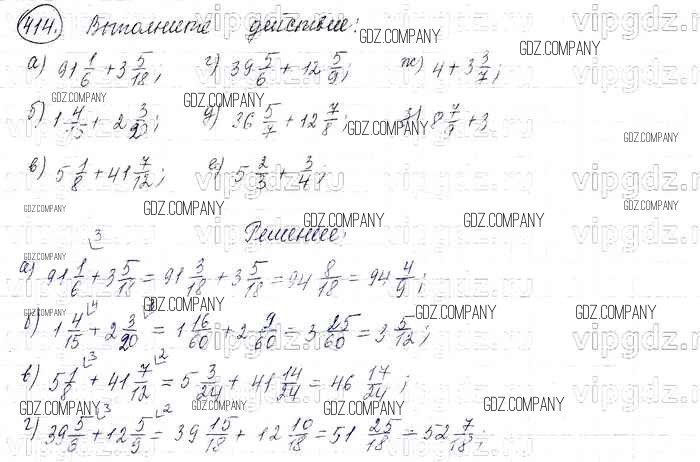 414. Выполните действие:
а) 91 1/6 + 3 5/18; г) 39 5/6 + 12 5/9; ж) 4 + 3 3/7;
б) 1 4/15 + 2 3/20; д) 36 5/7 + 12 7/8; з) 8 7/9 + 3
в) 5 1/8 + 41 7/12; е) 5 2/3 + 3/4;
Решение:
а) 91 1/6 + 3 5/18 = 91 3/18 + 3 5/18 = 94 8/18 = 94 4/9;
б) 1 4/15 + 2 3/20 = 1 16/60 + 2 9/60 = 3 25/60 = 3 5/12;
в) 5 1/8 + 41 7/12 = 5 3/24 + 41 14/24 = 46 17/24;
г) 39 5/6 + 12 5/9 = 39 15/18 + 12 10/18 = 51 25/18 = 52 7/18;
GDZ.COMPANY
vipgdz.ru